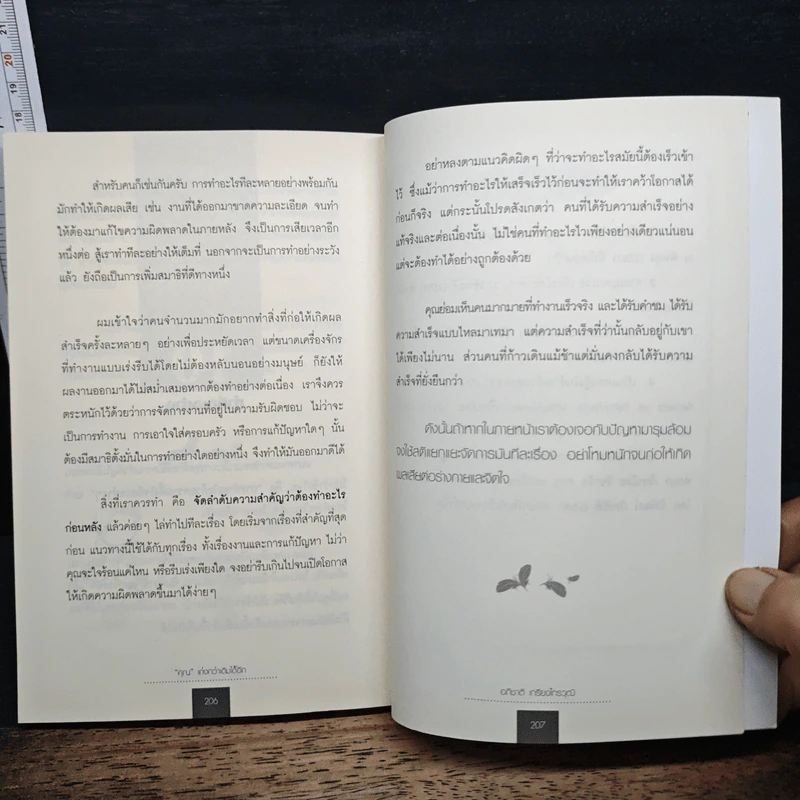 สำหรับคนก็เช่นกันครับ การทำอะไรทีละหลายอย่างพร้อมกัน
มักทำให้เกิดผลเสีย เช่น งานที่ได้ออกมาขาดความละเอียด จนทำ
ให้ต้องมาแก้ไขความผิดพลาดในภายหลัง จึงเป็นการเสียเวลาอีก
หนึ่งต่อ สู้เราทำทีละอย่างให้เต็มที่ นอกจากจะเป็นการทำอย่างระวัง
แล้ว ยังถือเป็นการเพิ่มสมาธิที่ดีทางหนึ่ง
ผมเข้าใจว่าคนจำนวนมากมักอยากทำสิ่งที่ก่อให้เกิดผล
สำเร็จครั้งละหลายๆ อย่างเพื่อประหยัดเวลา แต่ขนาดเครื่องจักร
ที่ทำงานแบบเร่งรีบได้โดยไม่ต้องหลับนอนอย่างมนุษย์ ก็ยังให้
ผลงานออกมาได้ไม่สม่ำเสมอหากต้องทำอย่างต่อเนื่อง เราจึงควร
ตระหนักไว้ด้วยว่าการจัดการงานที่อยู่ในความรับผิดชอบ ไม่ว่าจะ
เป็นการทำงาน การเอาใจใส่ครอบครัว หรือการแก้ปัญหาใดๆ นั้น
ต้องมีสมาธิตั้งมั่นในการทำอย่างใดอย่างหนึ่ง จึงทำให้มันออกมาดีได้
สิ่งที่เราควรทำ คือ จัดลำดับความสำคัญว่าต้องทำอะไร
ก่อนหลัง แล้วค่อยๆ ไล่ทำไปทีละเรื่อง โดยเริ่มจากเรื่องที่สำคัญที่สุด
ก่อน แนวทางนี้ใช้ได้กับทุกเรื่อง ทั้งเรื่องงานและการแก้ปัญหา ไม่ว่า
คุณจะใจร้อนแค่ไหน หรือรีบเร่งเพียงใด จงอย่ารีบเกินไปจนเปิดโอกาส
ให้เกิดความผิดพลาดขึ้นมาได้ง่ายๆ
"คุณ" เก่งกว่าเดิมได้อีก
206
อย่าหลงตามแนวคิดผิดๆ ที่ว่าจะทำอะไรสมัยนี้ต้องเร็วเข้า
ไว้ ซึ่งแม้ว่าการทำอะไรให้เสร็จเร็วไว้ก่อนจะทำให้เราคว้าโอกาสได้
ก่อนก็จริง แต่กระนั้นโปรดสังเกตว่า คนที่ได้รับความสำเร็จอย่าง
แท้จริงและต่อเนื่องนั้น ไม่ใช่คนที่ทำอะไรไวเพียงอย่างเดียวแน่นอน
แต่จะต้องทำได้อย่างถูกต้องด้วย
คุณย่อมเห็นคนมากมายที่ทำงานเร็วจริง และได้รับคำชม ได้รับ
ความสำเร็จแบบไหลมาเทมา แต่ความสำเร็จที่ว่านั้นกลับอยู่กับเขา
ได้เพียงไม่นาน ส่วนคนที่ก้าวเดินแม้ช้าแต่มั่นคงกลับได้รับความ
สำเร็จที่ยั่งยืนกว่า
ดังนั้นถ้าหากในภายหน้าเราต้องเจอกับปัญหามารุมล้อม
จงใช้สติแยกแยะจัดการมันทีละเรื่อง อย่าโหมหนักจนก่อให้เกิด
ผลเสียต่อร่างกายและจิตใจ
อภิชาติ เกรียงไกรวุฒิ
207
21
20
19
18
17